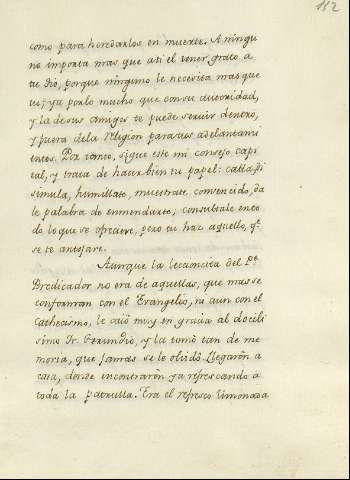 112
como para heredarlos en muerte. A ningu
no importa mas que a ti el tener grato a
tu tio, porque ninguno le necesita mas que
tu; ya porlo mucho que con su autoridad,
y la de sus amigos te puede servir dentro,
y fuera dela Religion para tus adelantami
entos. Por tanto, sigue este mi consejo capi
tal, y trata de hacer bien tu papel: calla, di
simula, humillate, muestrate convencido, da
le palabra de enmendarte; consultale en to
do lo que se ofreciere, pero tu haz aquello, qe.
se te antojare.
Aunque la leccioncita del Pe.
Predicador no era de aquellas, que mas se
conforman con el Evangelio, ni aun con el
Cathecismo, le caiò muy en gracia al docili
simo Fr. Gerundio, y la tomò tan de me
moria, que jamas se le olvidò. Llegaron a
casa, donde encontraron ya refrescando a
toda la patrulla. Era el refresco limonada